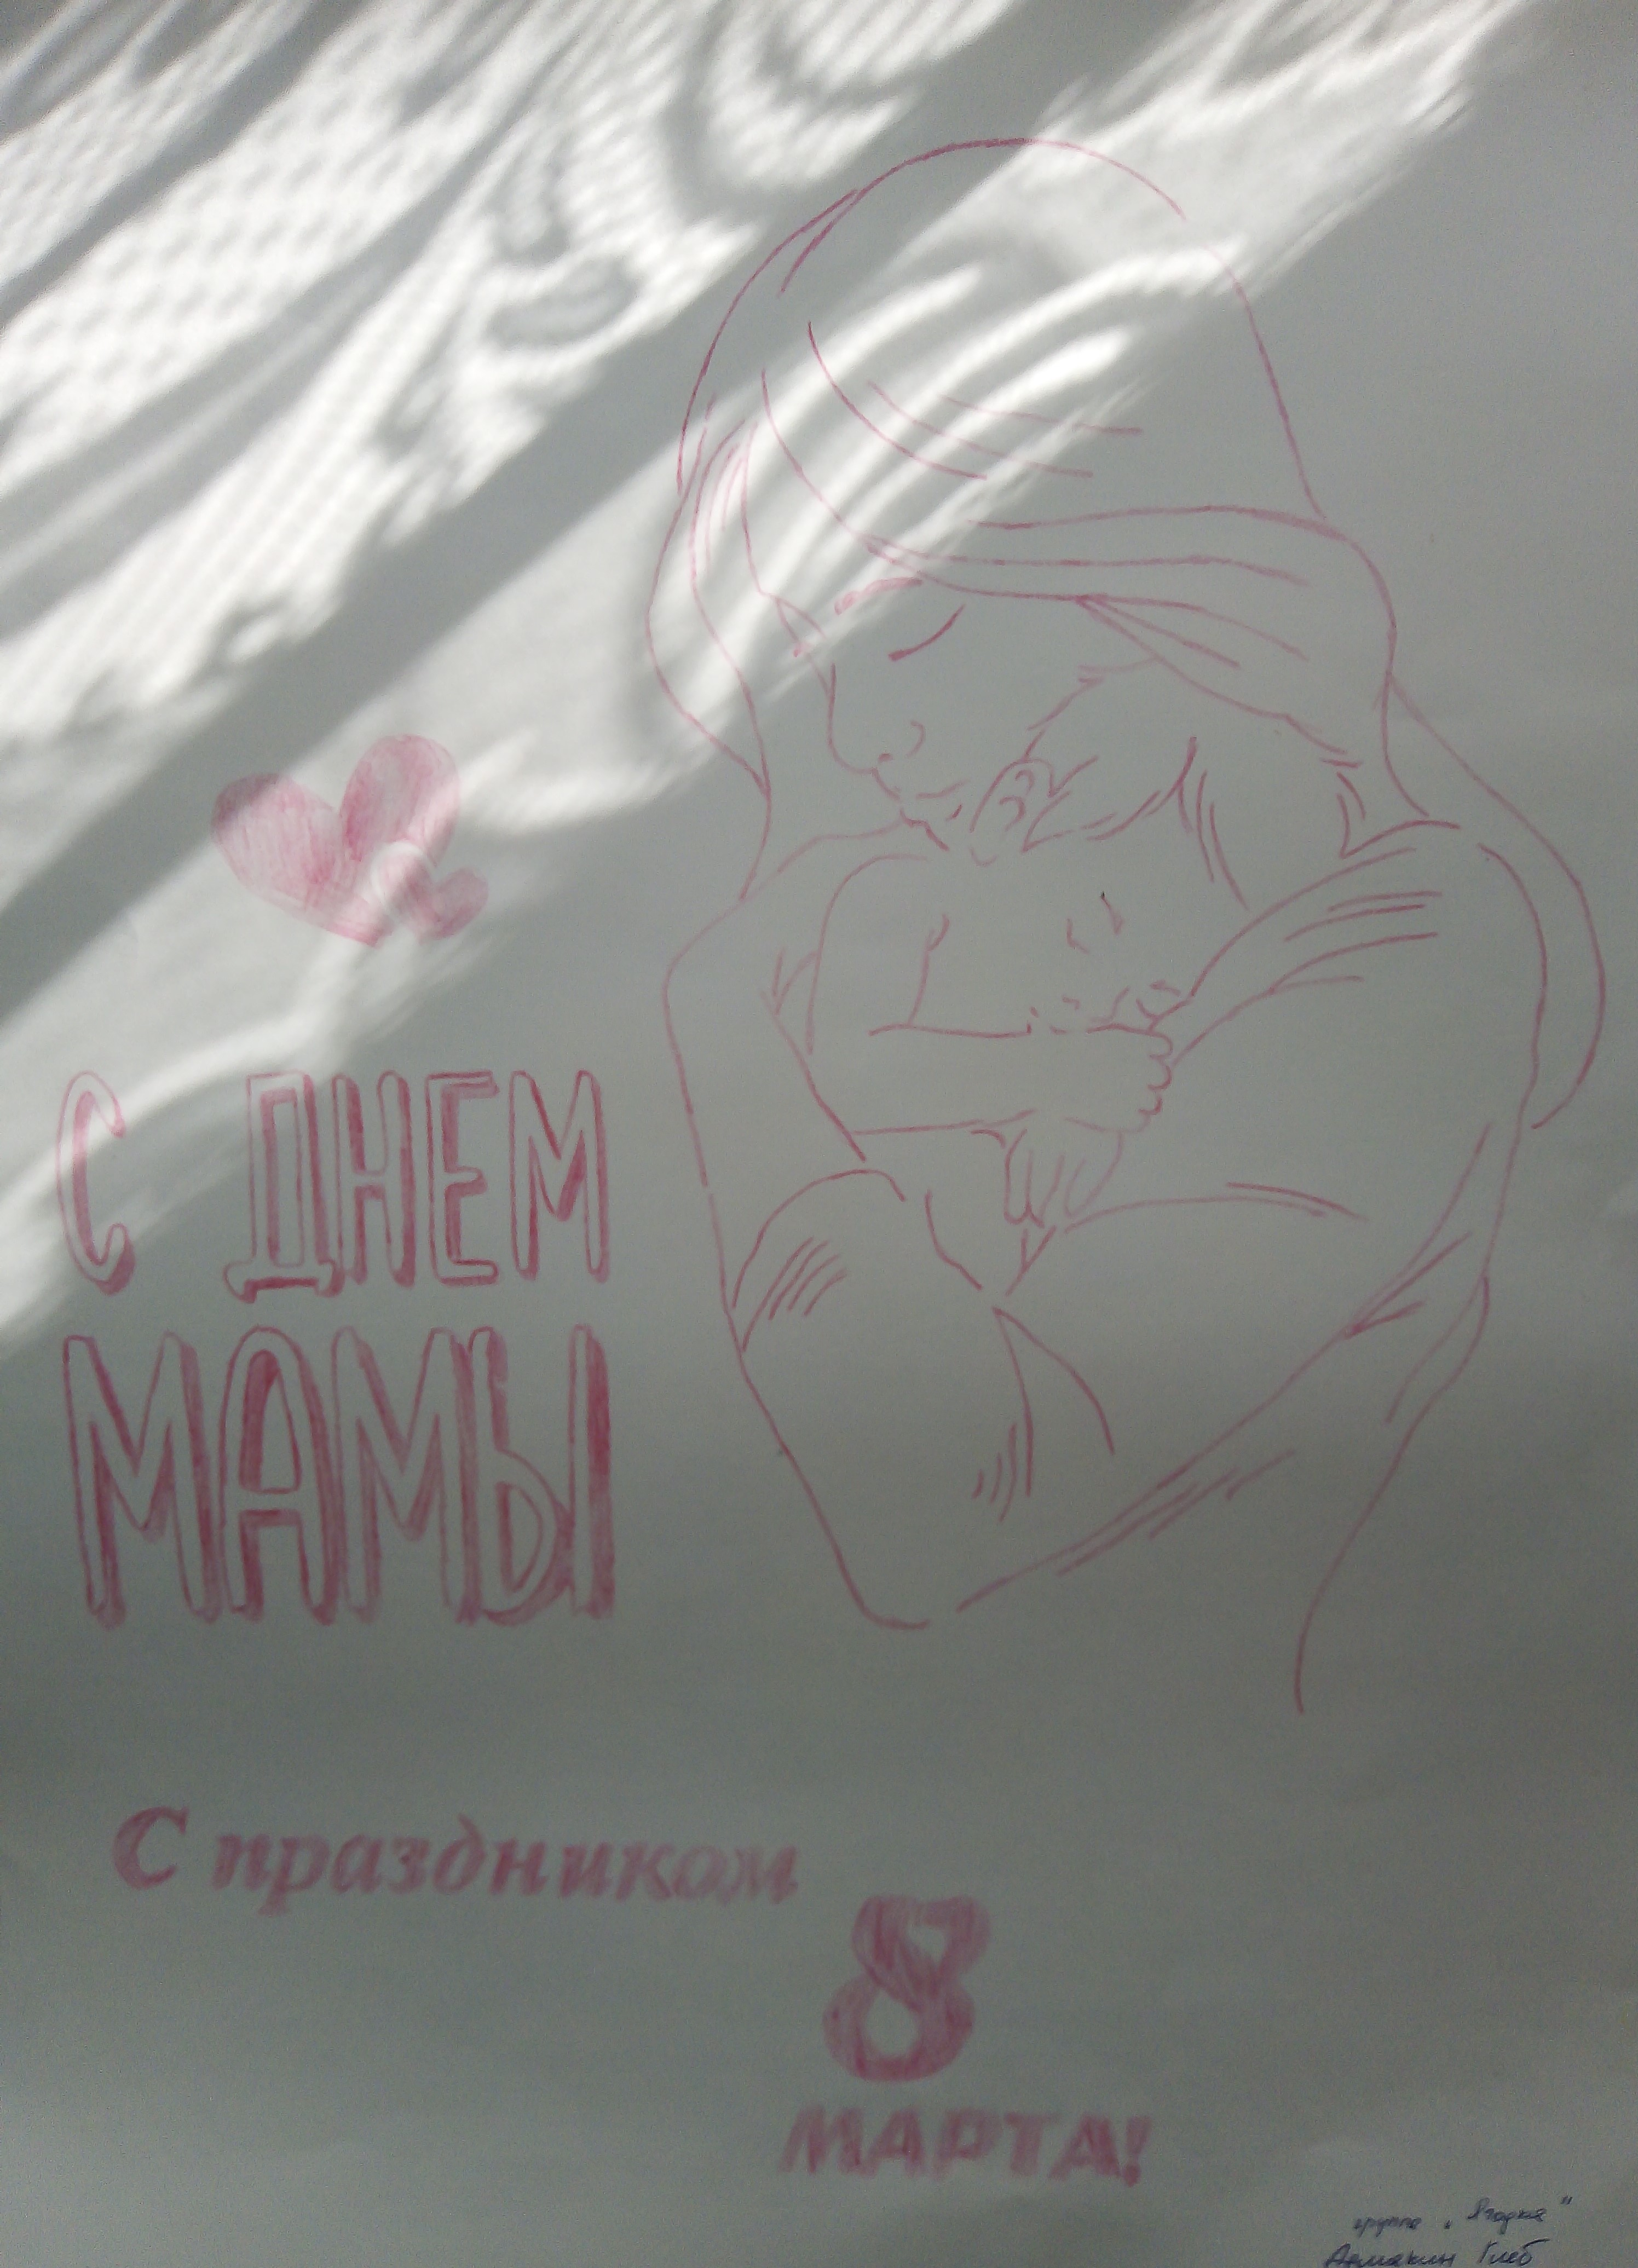 С ДНЕМ
МАМЫ
С праздником
8
МАРТА!
группа „Ягодка"
Глеб